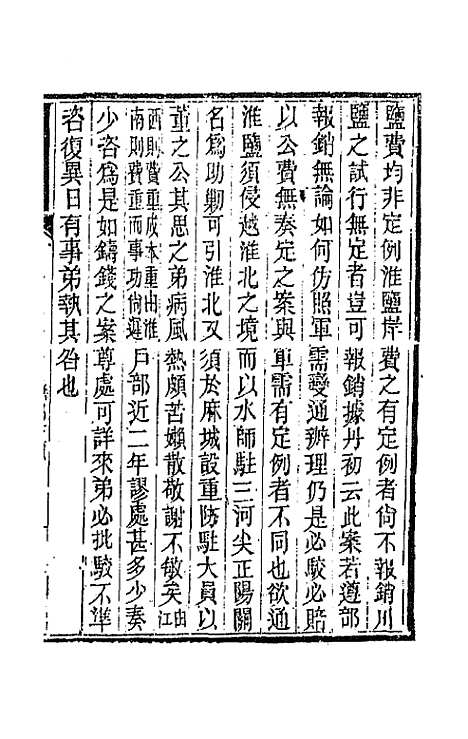 鹽費均非定例淮鹽岸費之有定例者尙不報銷川
鹽之試行無定者豈可報銷據丹初云此案若遵部
報銷無論如何仿照軍需變通辦理仍是必駁必賠
以公費無奏定之案與軍需有定例者不同也欲通
淮鹽須侵越淮北之境而以水師駐三河尖正陽關
名爲助勦可引淮北又須於麻城設重防駐大員以
董之公其思之弟病風熱頗苦嬾散敬謝不敏矣由江
西則費重成本重由淮南則費重而事功尙遲戶部近二年謬處甚多少奏
少咨爲是如鑄錢之案尊處可詳來弟必批駁不準
咨復異日有事弟執其咎也